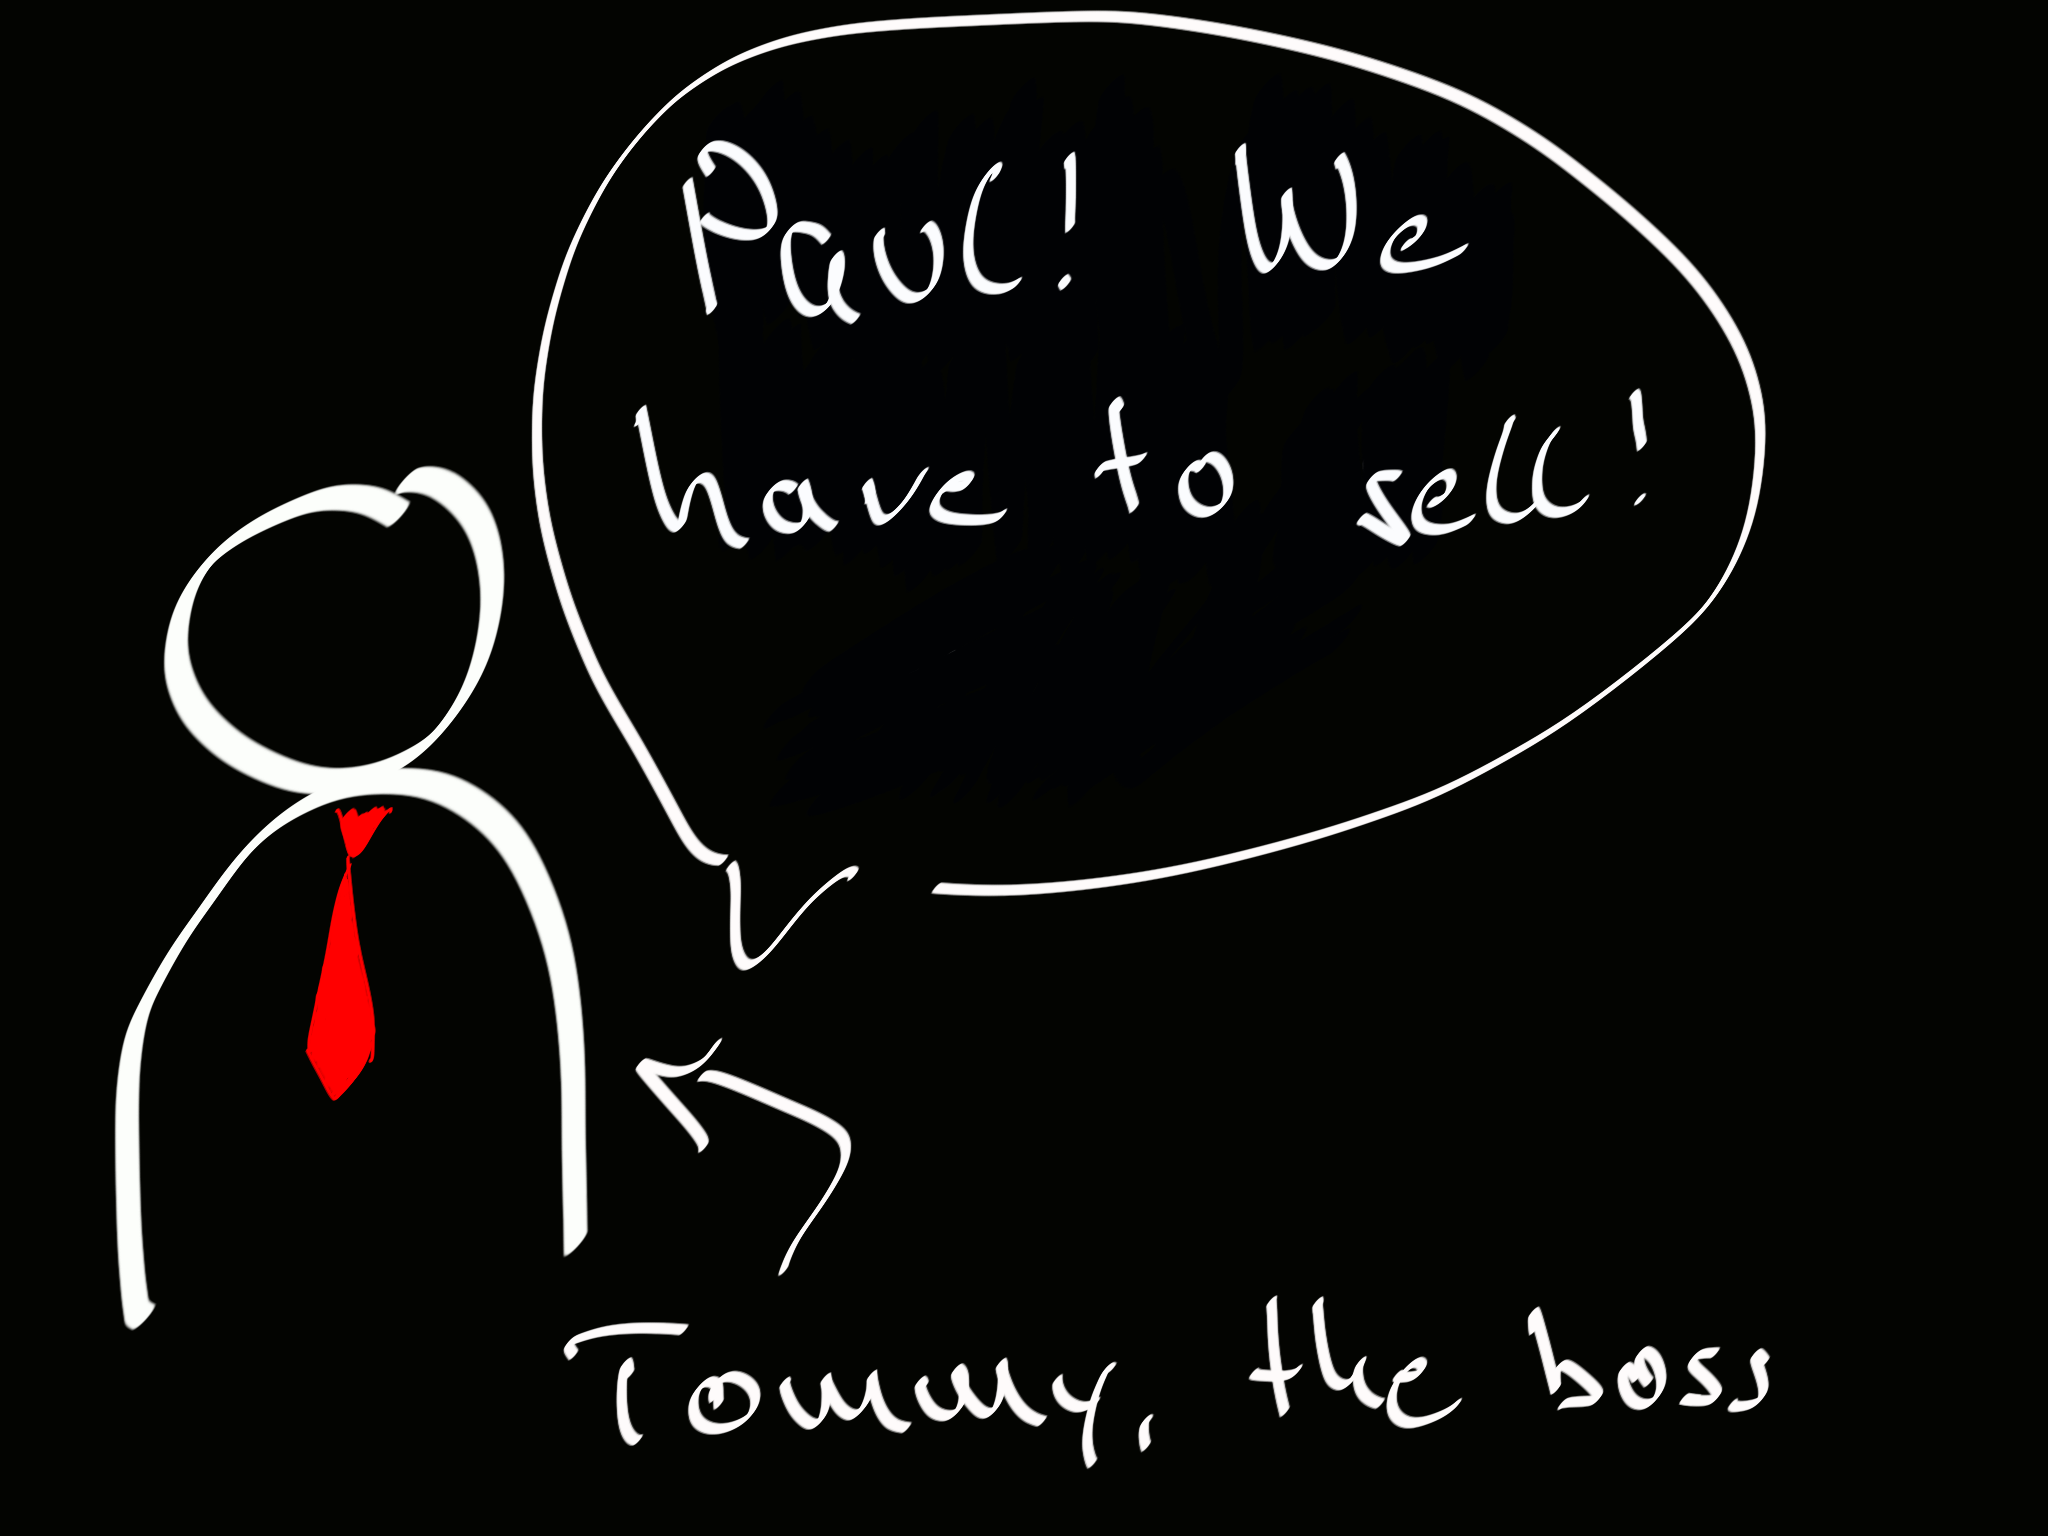 Paul! We
have to sell!
Tommy, the boss